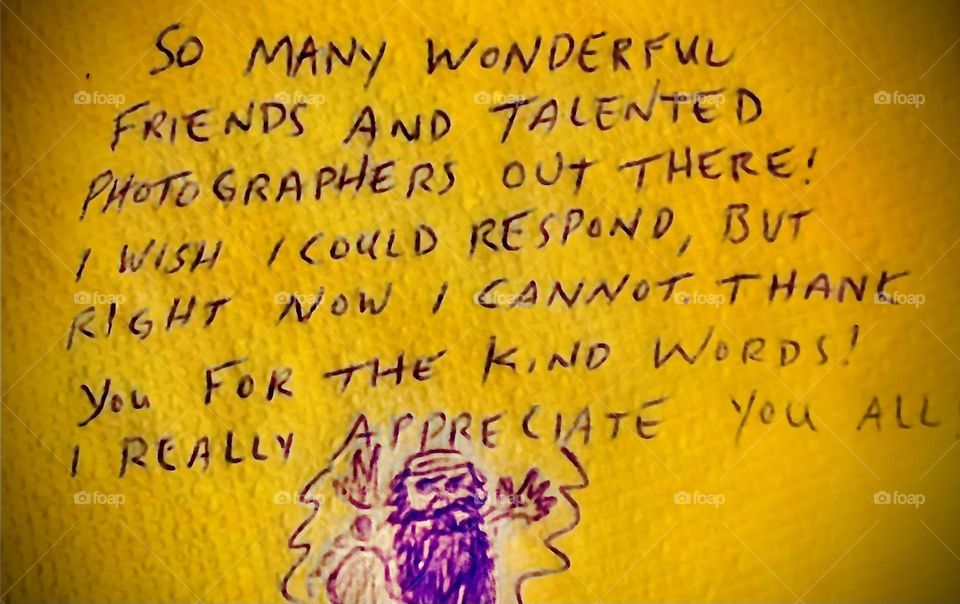 SO MANY WONDERFUL
FRIENDS AND TALENTED
PHOTOGRAPHERS OUT THERE!
I WISH I COULD RESPOND, BUT
RIGHT NOW I CANNOT. THANK
YOU FOR THE KIND WORDS!
I REALLY APPRECIATE YOU ALL
foap foap foap foap foap
foap foap foap foap foap
foap foap foap foap